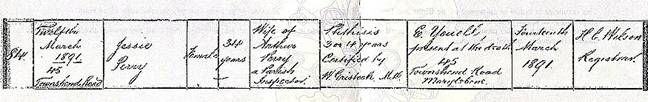 814
Twelfth
March
1891
45
Townshend Road
Jessie
Perry
Female
34
years
Wife of
Arthur
Perry
a Parish
Inspector
Phthisis
3 or 4 years
Certified by
W. Cristock M.B.
E. Yeucht,
present at the death
45
Townshend Road
Marylebone.
Fourteenth
March
1891.
H C Wilson
Registrar.